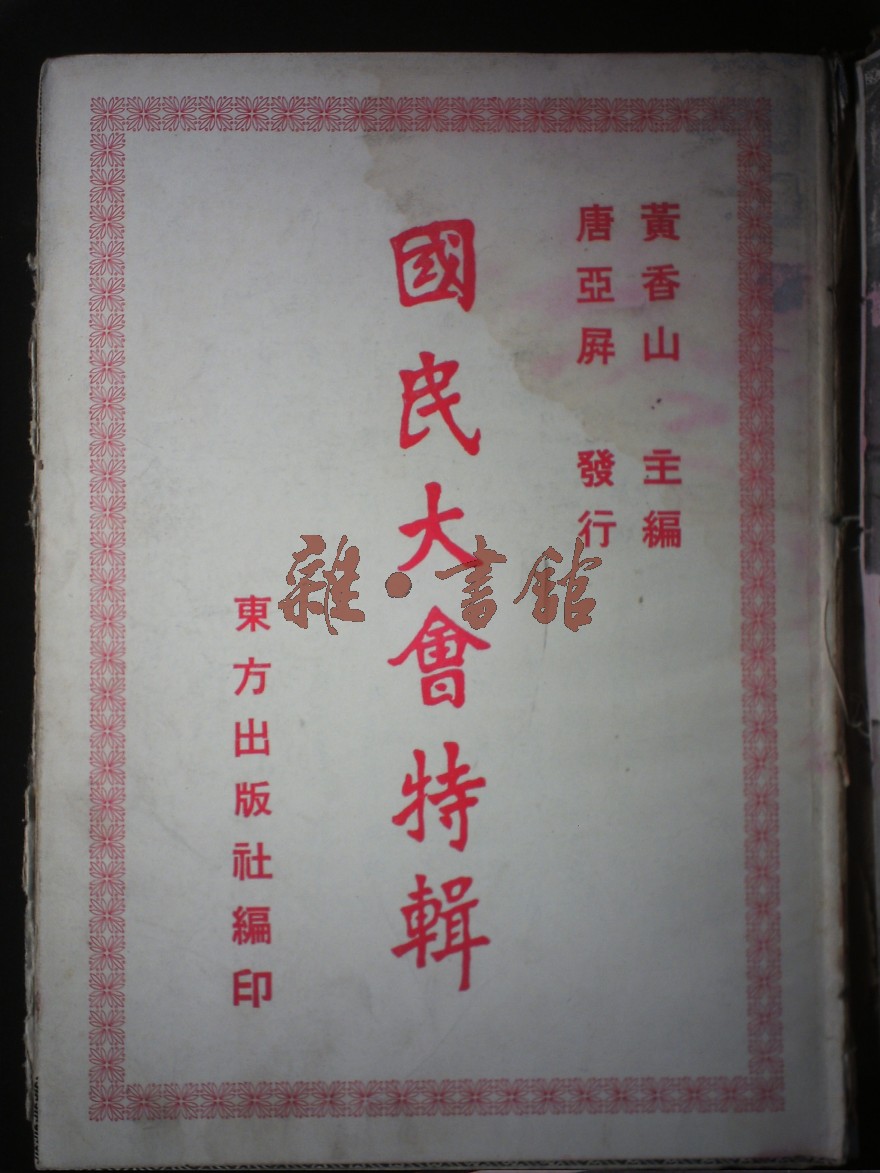 黃香山 主編
唐亞屏 發行
國民大會特輯
東方出版社編印
雜·書館